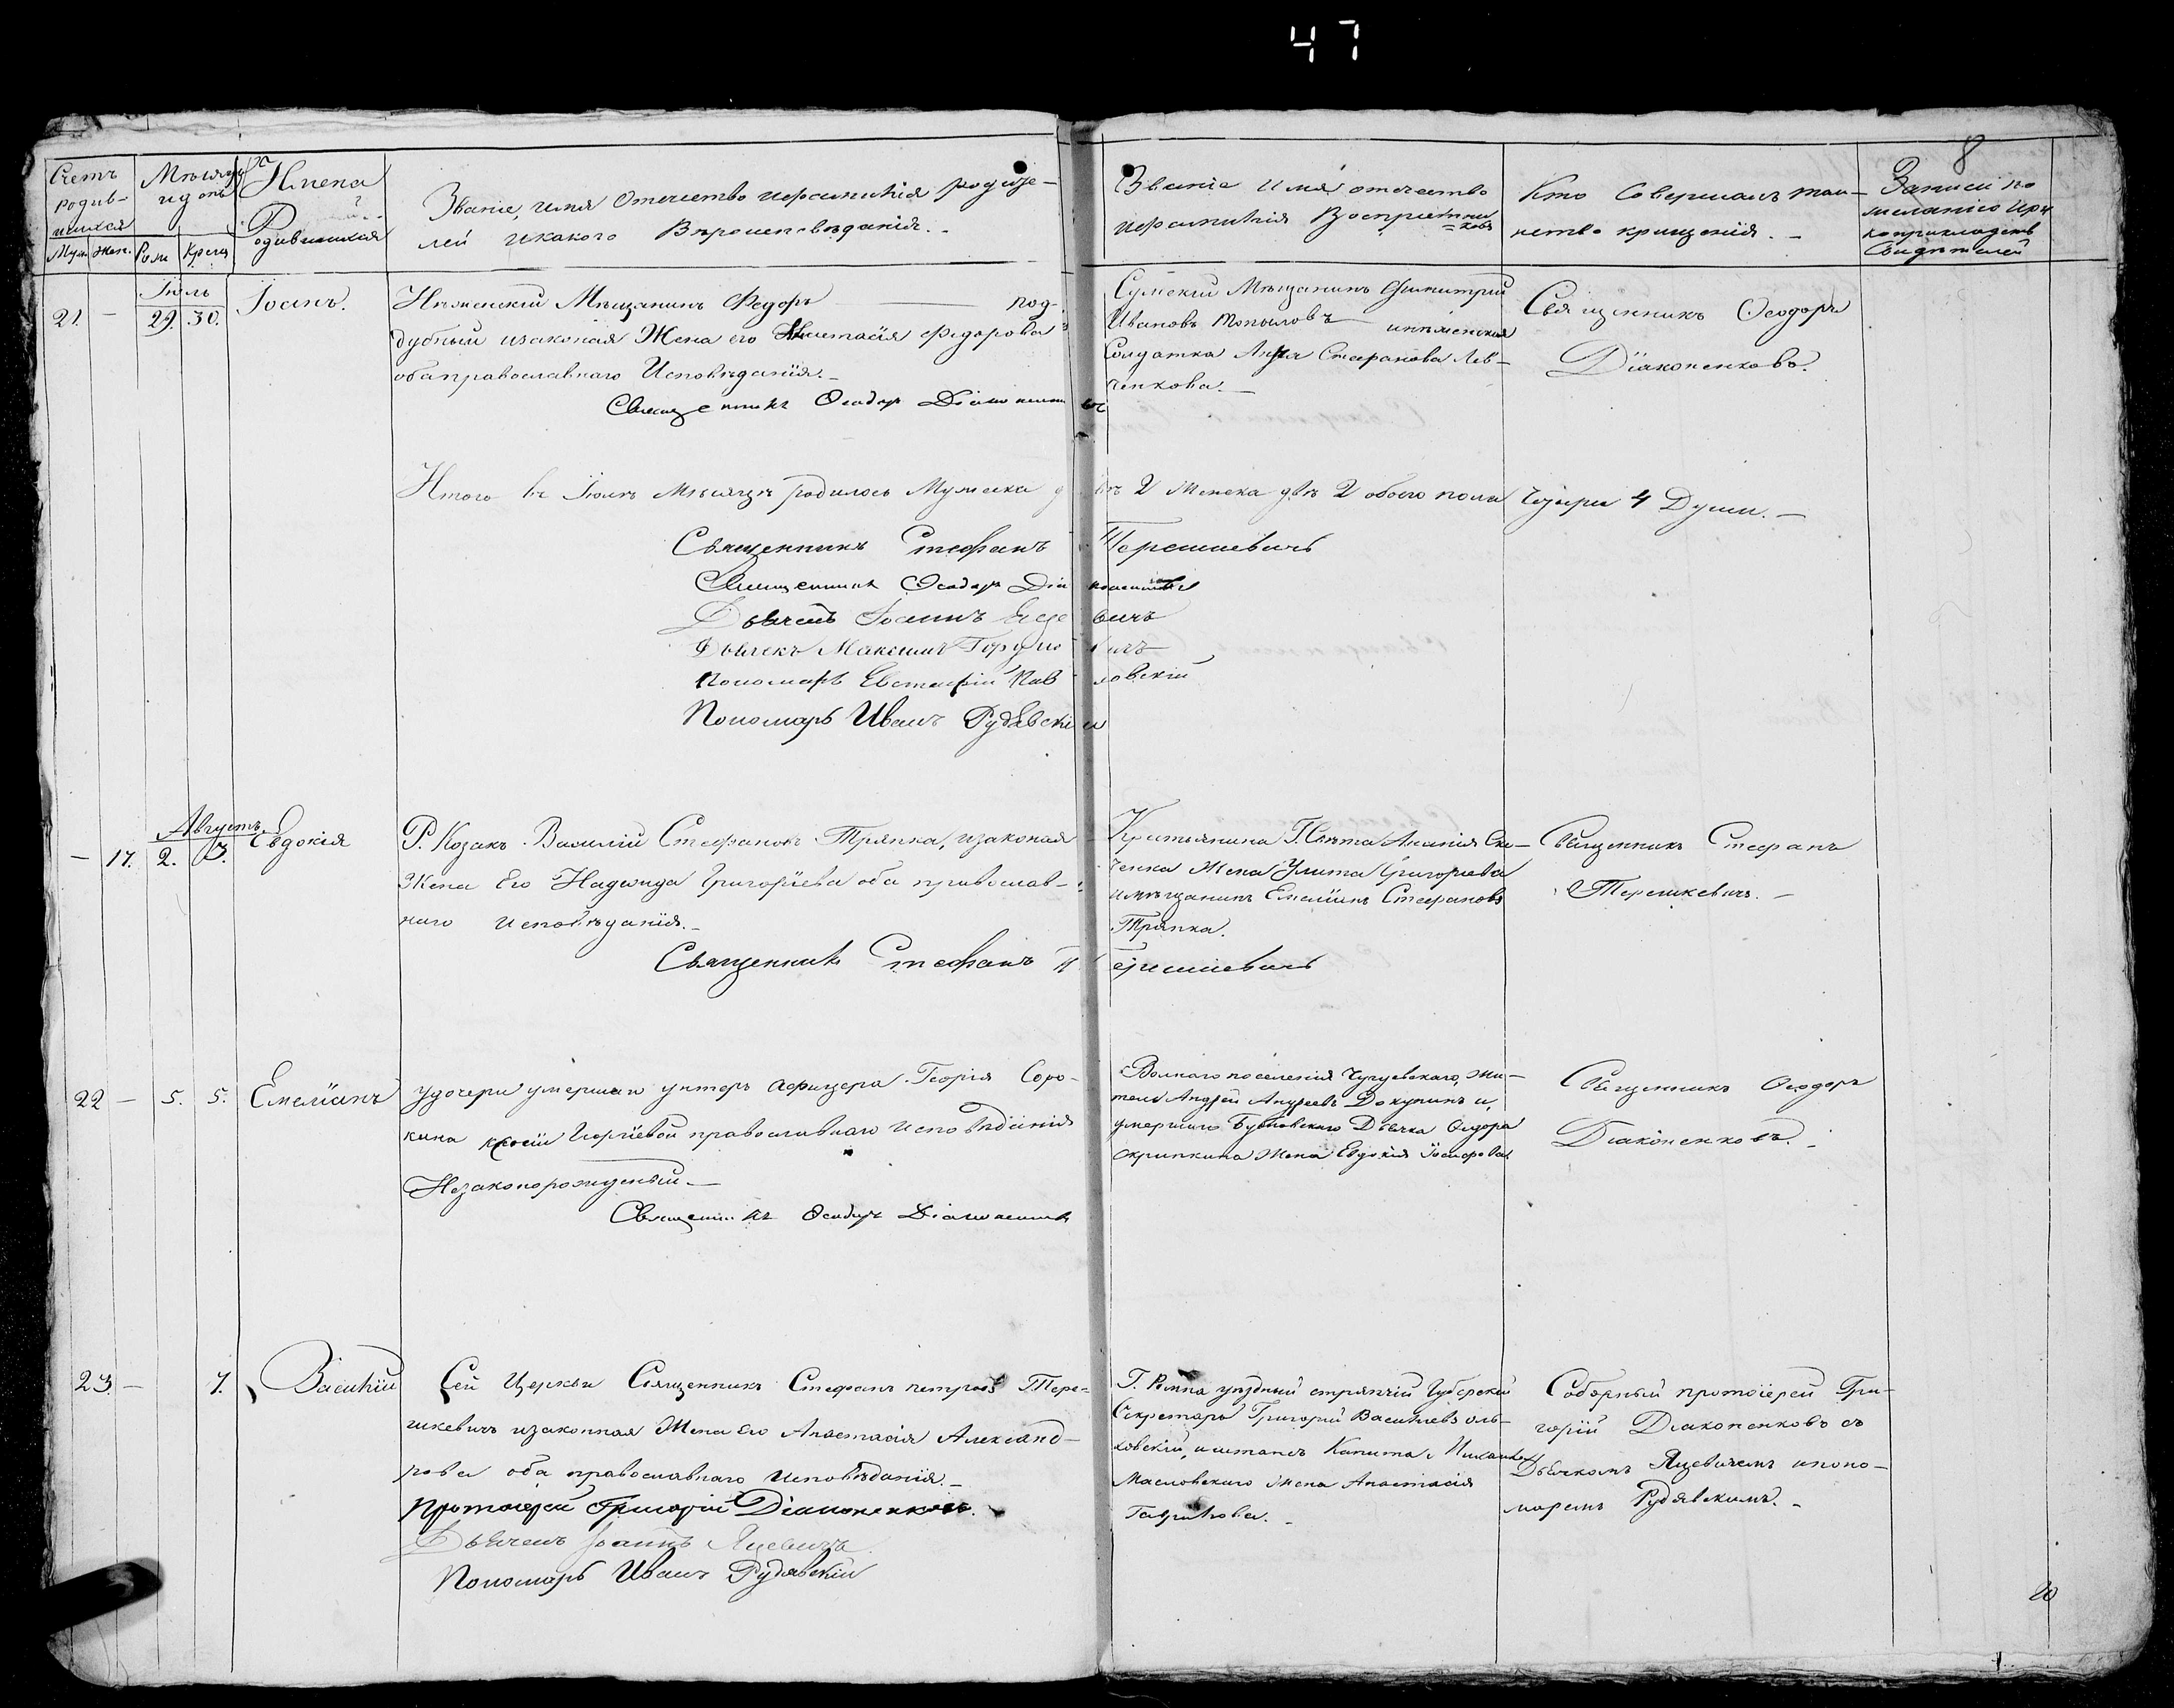 47
8
Счетъ родив-
шихся
Муж. Жен.
Мѣсяцъ
и день
Рож Крещ
Имена
Родившихся
Званіе, имя Отечество и фамилія родите-
лей и какого Вѣроисповѣданія.
Званіе имя отечество
и фамилія Воспріемни
ковъ
Кто Совершалъ таи-
нство крещенія.
Іюль
21. — 29. 30. Іоанъ.
Нѣженскій Мѣщанинъ Федоръ под-
дубный и законая Жена его Анастасія Федорова
оба православнаго Исповѣданія.
Священникъ Ѳеодоръ Діаконенковъ
Сумскій Мѣщанинъ Димитрій
Ивановъ и нѣженская
Солдатка Анна Стефанова Лев-
ченкова.
Священникъ Ѳеодоръ
Діаконенковъ.
Итого въ Іюлѣ Мѣсяцѣ родилось Мужеска двѣ 2 Женска двѣ 2 обоего пола Чтыри 4 Души.
Священникъ Стефанъ Терешкевичъ
Священникъ Ѳеодоръ Діаконенковъ
Дьячекъ Іоаннъ Яцевичъ
Дьячекъ Максимъ
Пономарь Евстафій Павловскій
Пономарь Иванъ Рудявскій
Августъ
— 17. 2. 3. Евдокія
Р. Козакъ Василій Стефановъ Тряпка, и законая
Жена Его Надежда Григоріева оба православ-
наго исповѣданія.
Священникъ Стефанъ Терешкевичъ
Крестьянина Ананія
ченка Жена Улита Григориева
и мѣщанинъ Емеліянъ Стефановъ
Тряпка.
Священникъ Стефанъ
Терешкевичъ.
22 — 5. 5. Емеліанъ
У дочери умершаго унтеръ афицера Георгія Соро-
кина православнаго исповѣданія
Незаконорожденый.
Священникъ Ѳеодоръ Діаконенковъ
Военаго поселенія Чугуевскаго, жи-
тель Андрей Андреевъ Докунинъ и,
умершаго Дьячка Ѳедора
Скрипкина Жена Евдокія Іосифова.
Священникъ Ѳеодоръ
Діаконенковъ.
23. — 7. Василій
Сей Церкви Священникъ Стефанъ петровъ Тере-
шкевичъ и законная Жена Его Анастасія Александ-
рова оба православнаго исповѣданія.
Протоіерей Григорій Діаконенковъ.
Дьячекъ Іоаннъ Яцевичъ.
Пономарь Иванъ Рудявскій
Г. Ромна уѣздный стряпчій Губерскій
Секретарь Григорій Васильевъ Оль-
ховскій, и штапсъ Капитана
Масловскаго жена Анастасія
Гаврилова.
Соборный протоіерей Гри-
горій Діаконенковъ съ
Дьячкомъ Яцевичемъ и поно-
маремъ Рудявскимъ.
20